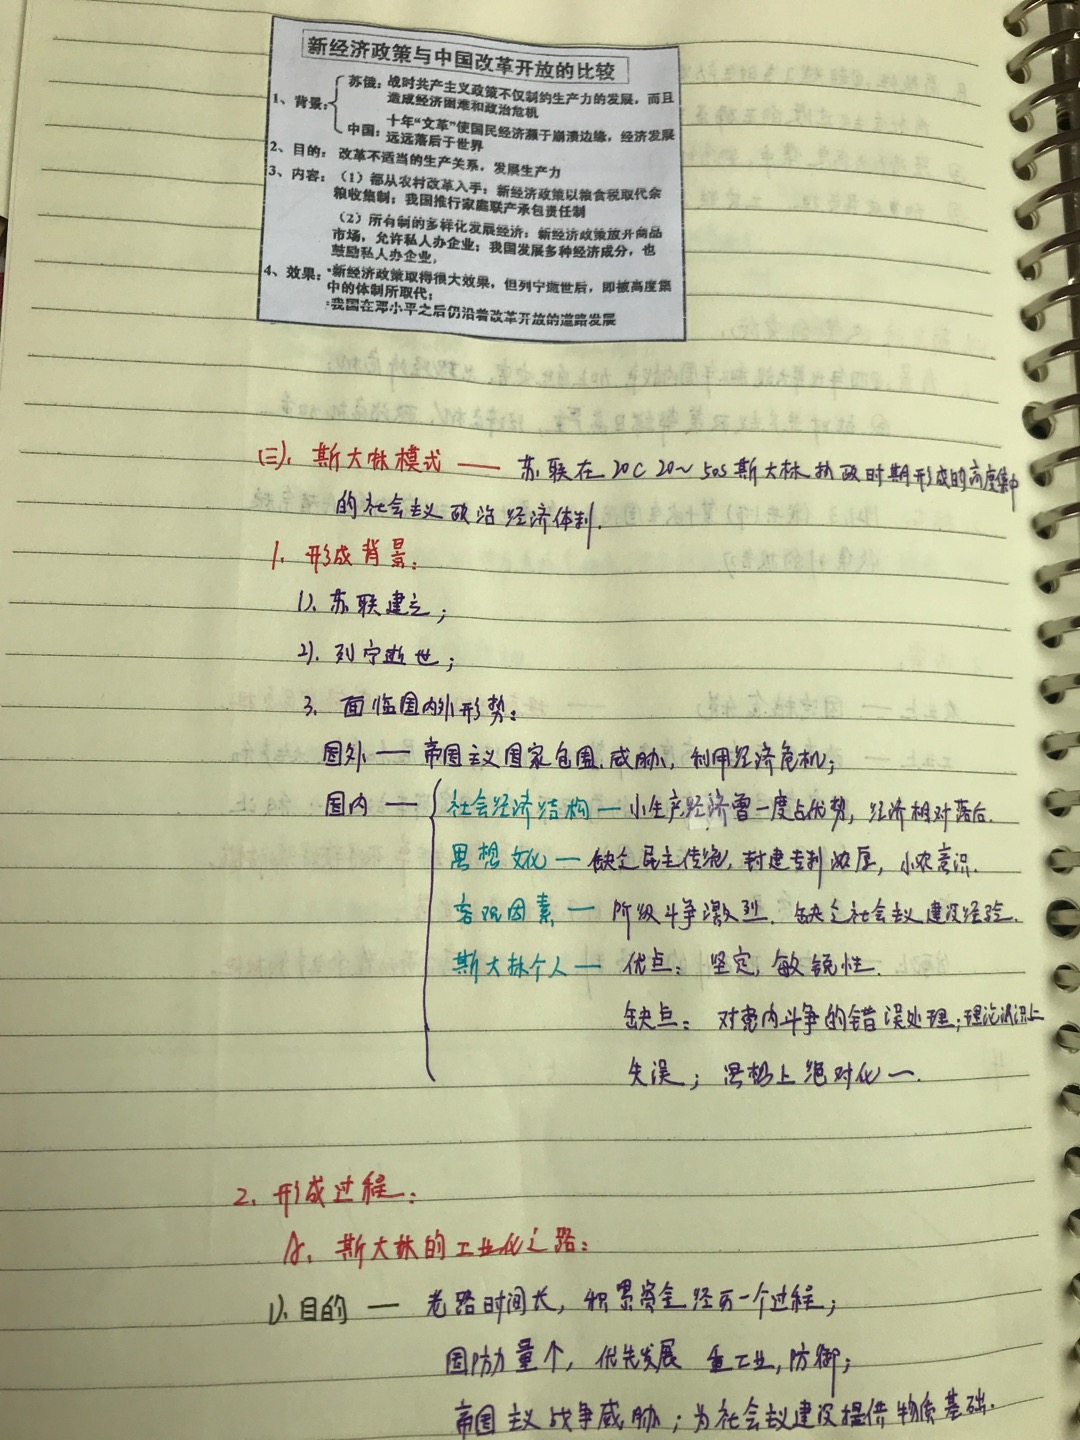 新经济政策与中国改革开放的比较
1、背景：
苏俄：战时共产主义政策不仅制约生产力的发展，而且
造成经济困难和政治危机
中国：十年“文革”使国民经济濒于崩溃边缘，经济发展
远远落后于世界
2、目的：改革不适当的生产关系，发展生产力
3、内容：（1）都从农村改革入手：新经济政策以粮食税取代余
粮收集制；我国推行家庭联产承包责任制
（2）所有制的多样化发展经济：新经济政策放开商品
市场，允许私人办企业；我国发展多种经济成分，也
鼓励私人办企业，
4、效果：·新经济政策取得很大效果，但列宁逝世后，即被高度集
中的体制所取代；
·我国在邓小平之后仍沿着改革开放的道路发展
(三)、斯大林模式 —— 苏联在20C 20～50s斯大林执政时期形成的高度集中
的社会主义政治经济体制.
1、形成背景：
1)、苏联建立；
2)、列宁逝世；
3、面临国内外形势：
国外 — 帝国主义国家包围、威胁，利用经济危机；
国内 — 社会经济结构 — 小生产经济曾一度占优势，经济相对落后.
思想文化 — 缺乏民主传统，封建专制浓厚，小农意识.
客观因素 — 阶级斗争激烈、缺乏社会主义建设经验.
斯大林个人 — 优点：坚定，敏锐性.
缺点：对党内斗争的错误处理；理论认识上
失误；思想上绝对化一.
2、形成过程：
A、斯大林的工业化之路：
1)、目的 — 老路时间长，积累资金经历一个过程；
国防力量个，优先发展 重工业，防御；
帝国主义战争威胁；为社会主义建设提供物质基础.